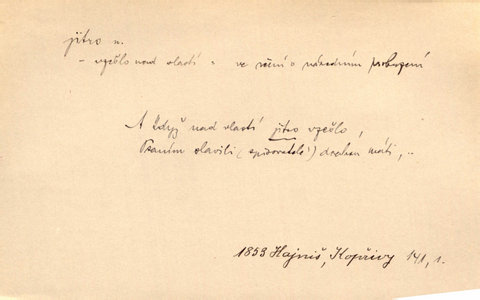 jitro n.
- vzešlo nad vlastí = ve rčení o národním probuzení
A když nad vlastí jitro vzešlo,
Psaním slavili (spisovatelé) drahou máti, ..
1853 Hajniš, Kopřivy 141, 1.